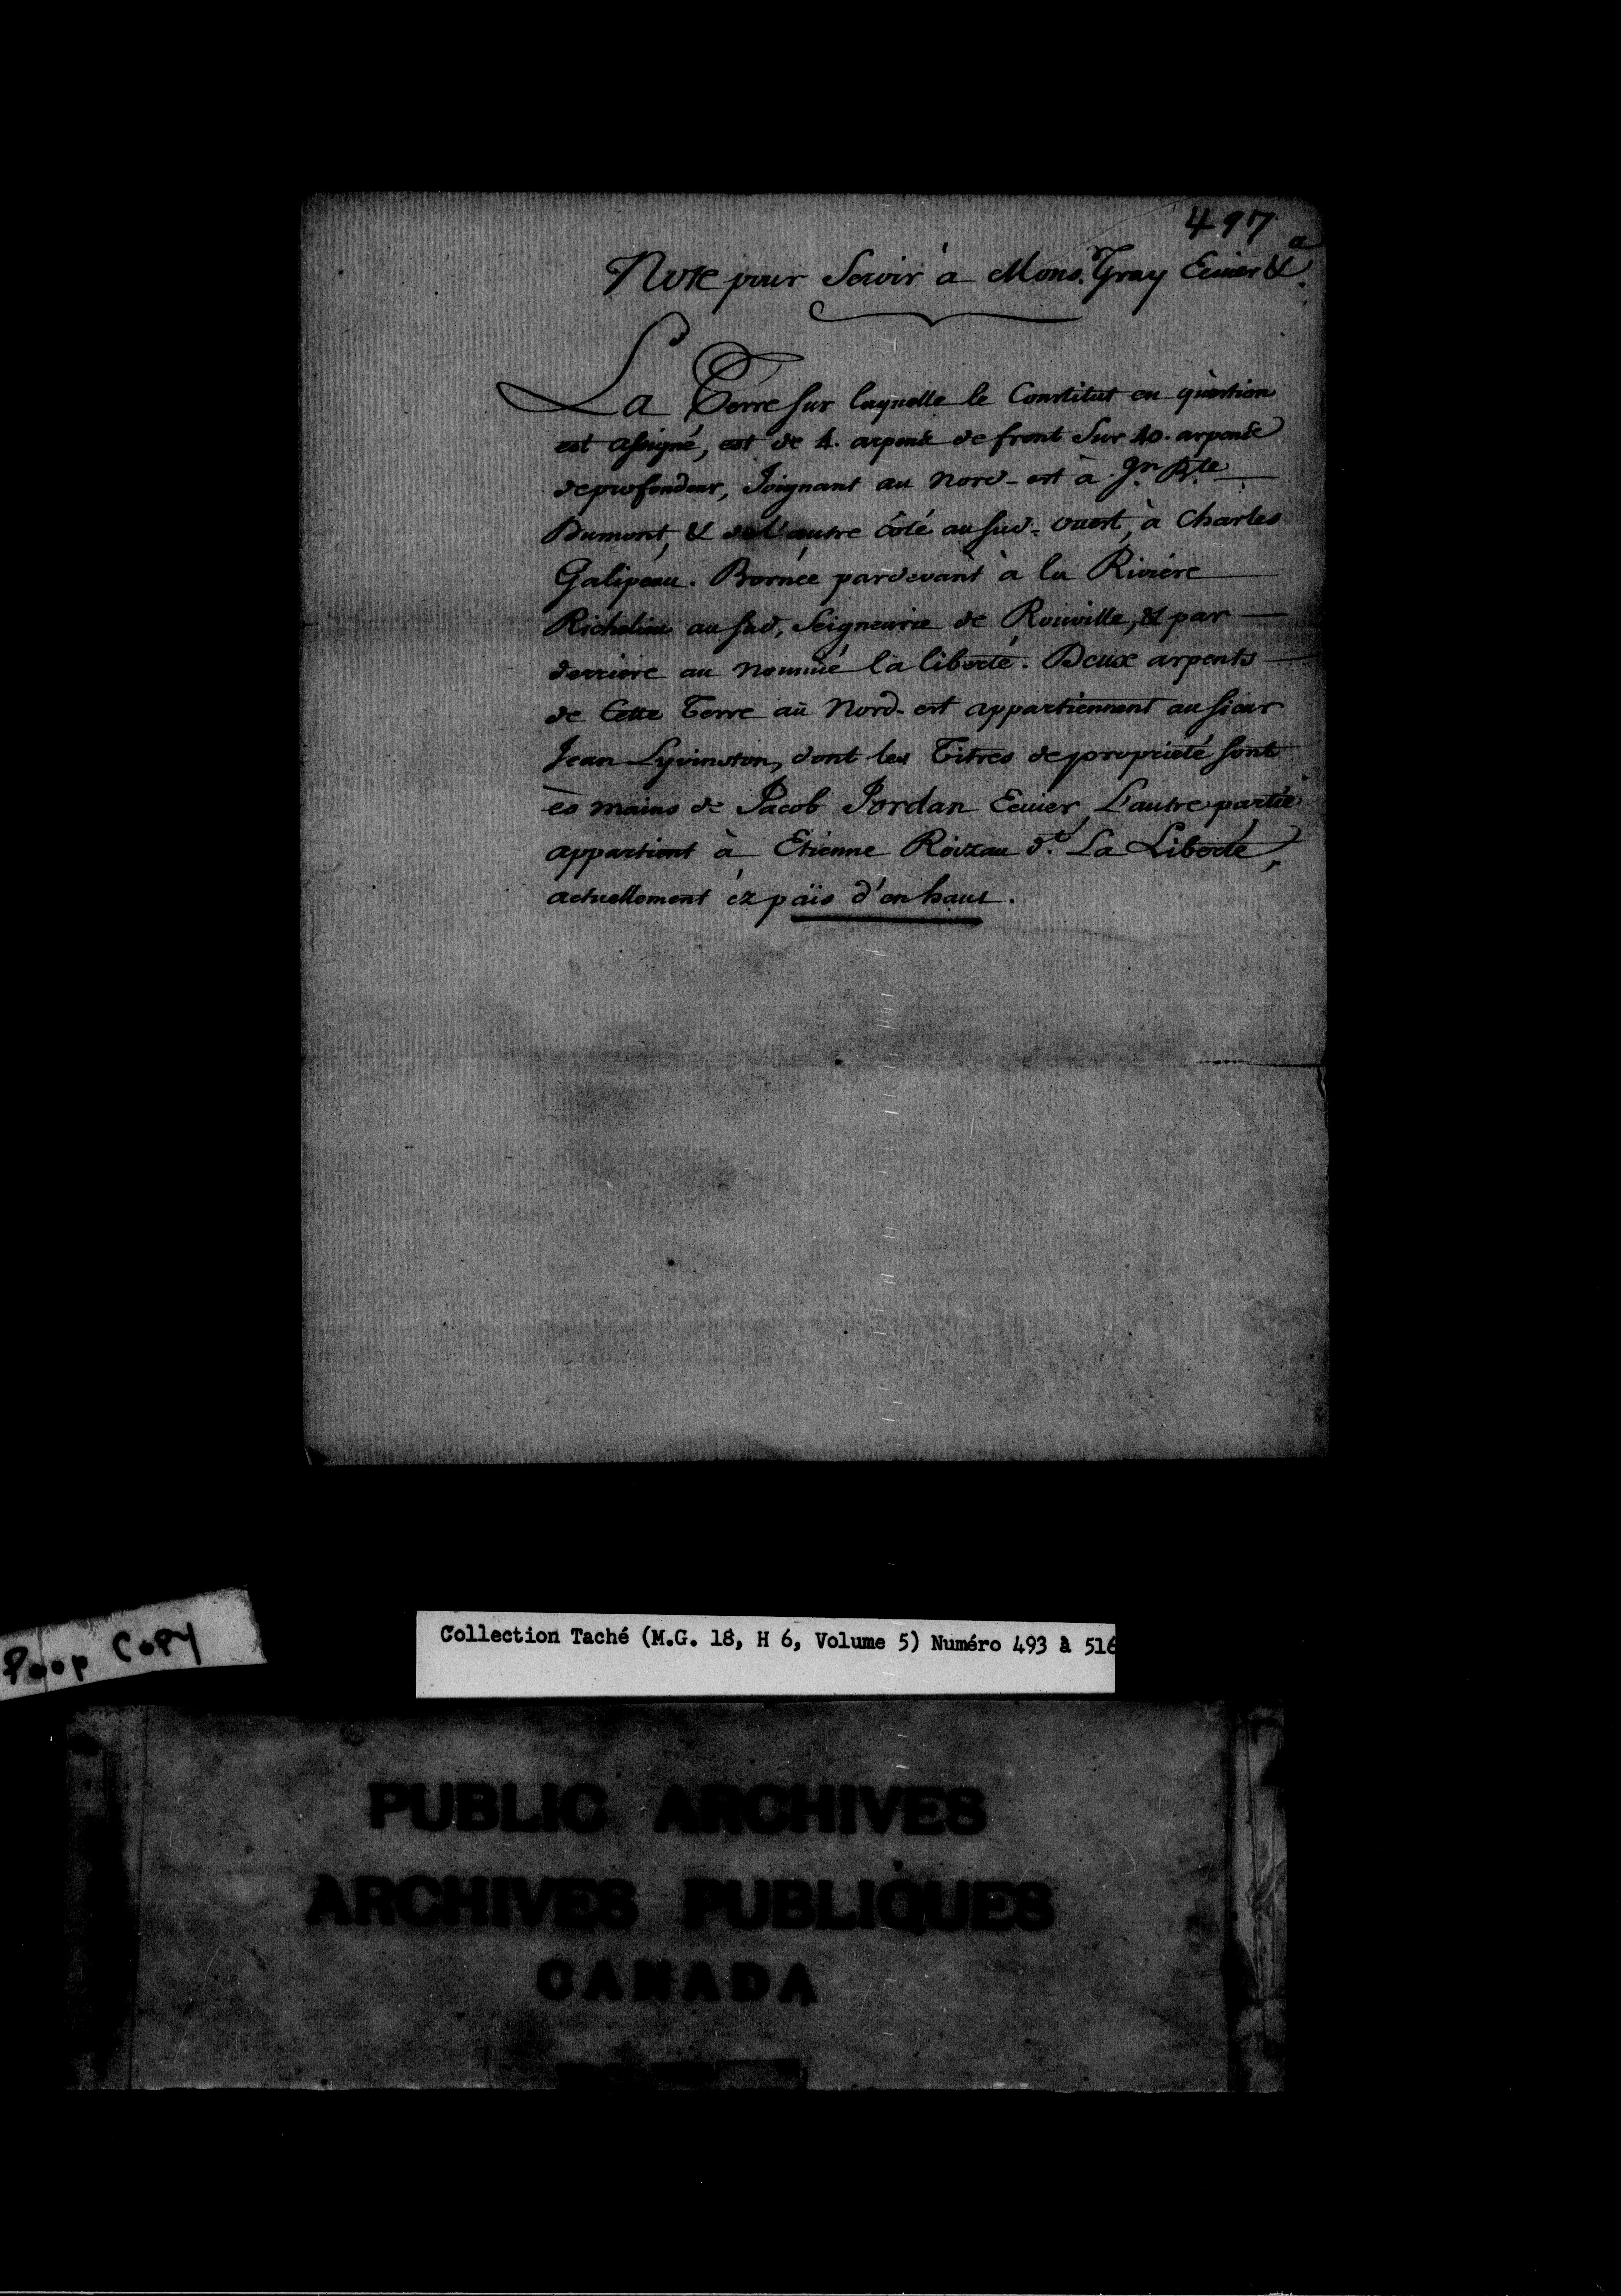 497
Note pour Servir à Mons. Gray Ecuier &a.
La Terre sur laquelle le Constitut en quèstion
est assigné, est de 4. arpents de front sur 40. arpents
de profondeur, Joignant au nord-est à Jn. Bte.
Dumont, & de l'autre côté au sud-ouest, à Charles
Galipeau. Bornée pardevant à la Riviére
Richelieu au sud, Seigneurie de Rouville, & par
derriere au nommé la liberté. Deux arpents
de Cette Terre au Nord-est appartiennent au sieur
Jean Lyvinston, dont les Titres de proprieté sont
ès mains de Jacob Jordan Ecuier, L'autre partie
appartient à Etienne Roizau dt. La Liberté,
actuellement éz païs d'en haut.
Poor Copy
Collection Taché (M.G. 18, H 6, Volume 5) Numéro 493 à 516
PUBLIC ARCHIVES
ARCHIVES PUBLIQUES
CANADA